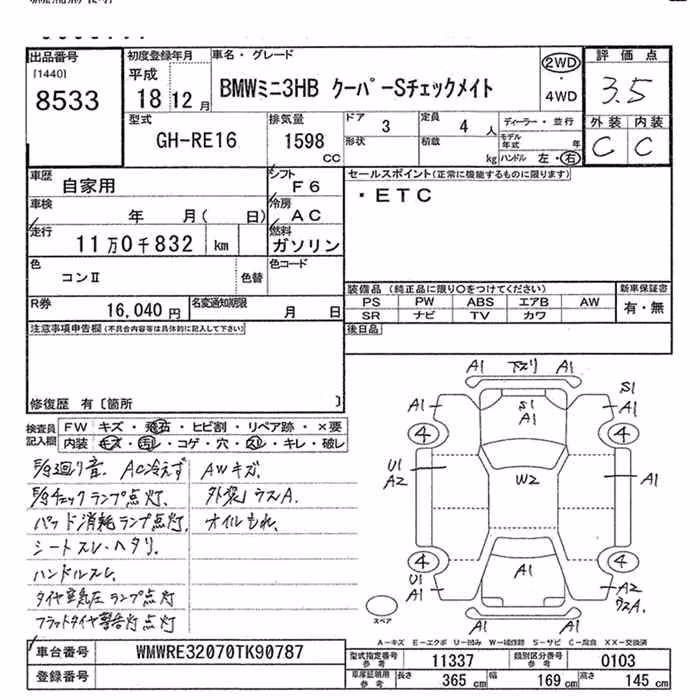 出品番号
[1440]
8533
初度登録年月
平成
18 12 月
車名・グレード
BMWミニ3HB クーパーSチェックメイト
2WD
・
4WD
評価点
3.5
外装 内装
C C
型式
GH-RE16
排気量
1598
CC
ドア
3
形状
定員
4 人
積載
kg
ディーラー・並行
モデル年式 年
ハンドル 左・右
車歴
自家用
車検
年 月( 日)
走行
11万0千832 km
シフト
F6
冷房
AC
燃料
ガソリン
色
コンⅡ
色替
色コード
R券
16,040 円
名変通知期限
月 日
セールスポイント(正常に機能するものに限ります)
・ETC
装備品 (純正品に限り○をつけてください)
PS PW ABS エアB AW
SR ナビ TV カワ
新車保証書
有・無
後日品
注意事項申告欄(不具合内容等は具体的に記入して下さい)
修復歴 有〔箇所 〕
検査員記入欄
FW キズ・飛石・ヒビ割・リペア跡・×要
内装 キズ・汚レ・コゲ・穴・スレ・キレ・破レ
AC冷えず
チェックランプ点灯.
パッド消耗ランプ点灯.
シートスレ・ヘタリ.
ハンドルスレ.
タイヤ空気圧ランプ点灯
フラットタイヤ警告灯点灯
AWキズ.
外装ウスA.
オイルもれ.
A1 下スリ A1
S1
A1 A1
S1
A1
4 4
U1
A2
W2
A1
4 4
U1
A1
A1
A2
ウスA.
スペア
A-キズ E-エクボ U-凹み W-補修跡 S-サビ C-腐食 XX-交換済
車台番号
WMWRE32070TK90787
登録番号
型式指定番号
参考
11337
類別区分番号
参考
0103
車庫証明用
参考
長さ
365 cm
幅
169 cm
高さ
145 cm